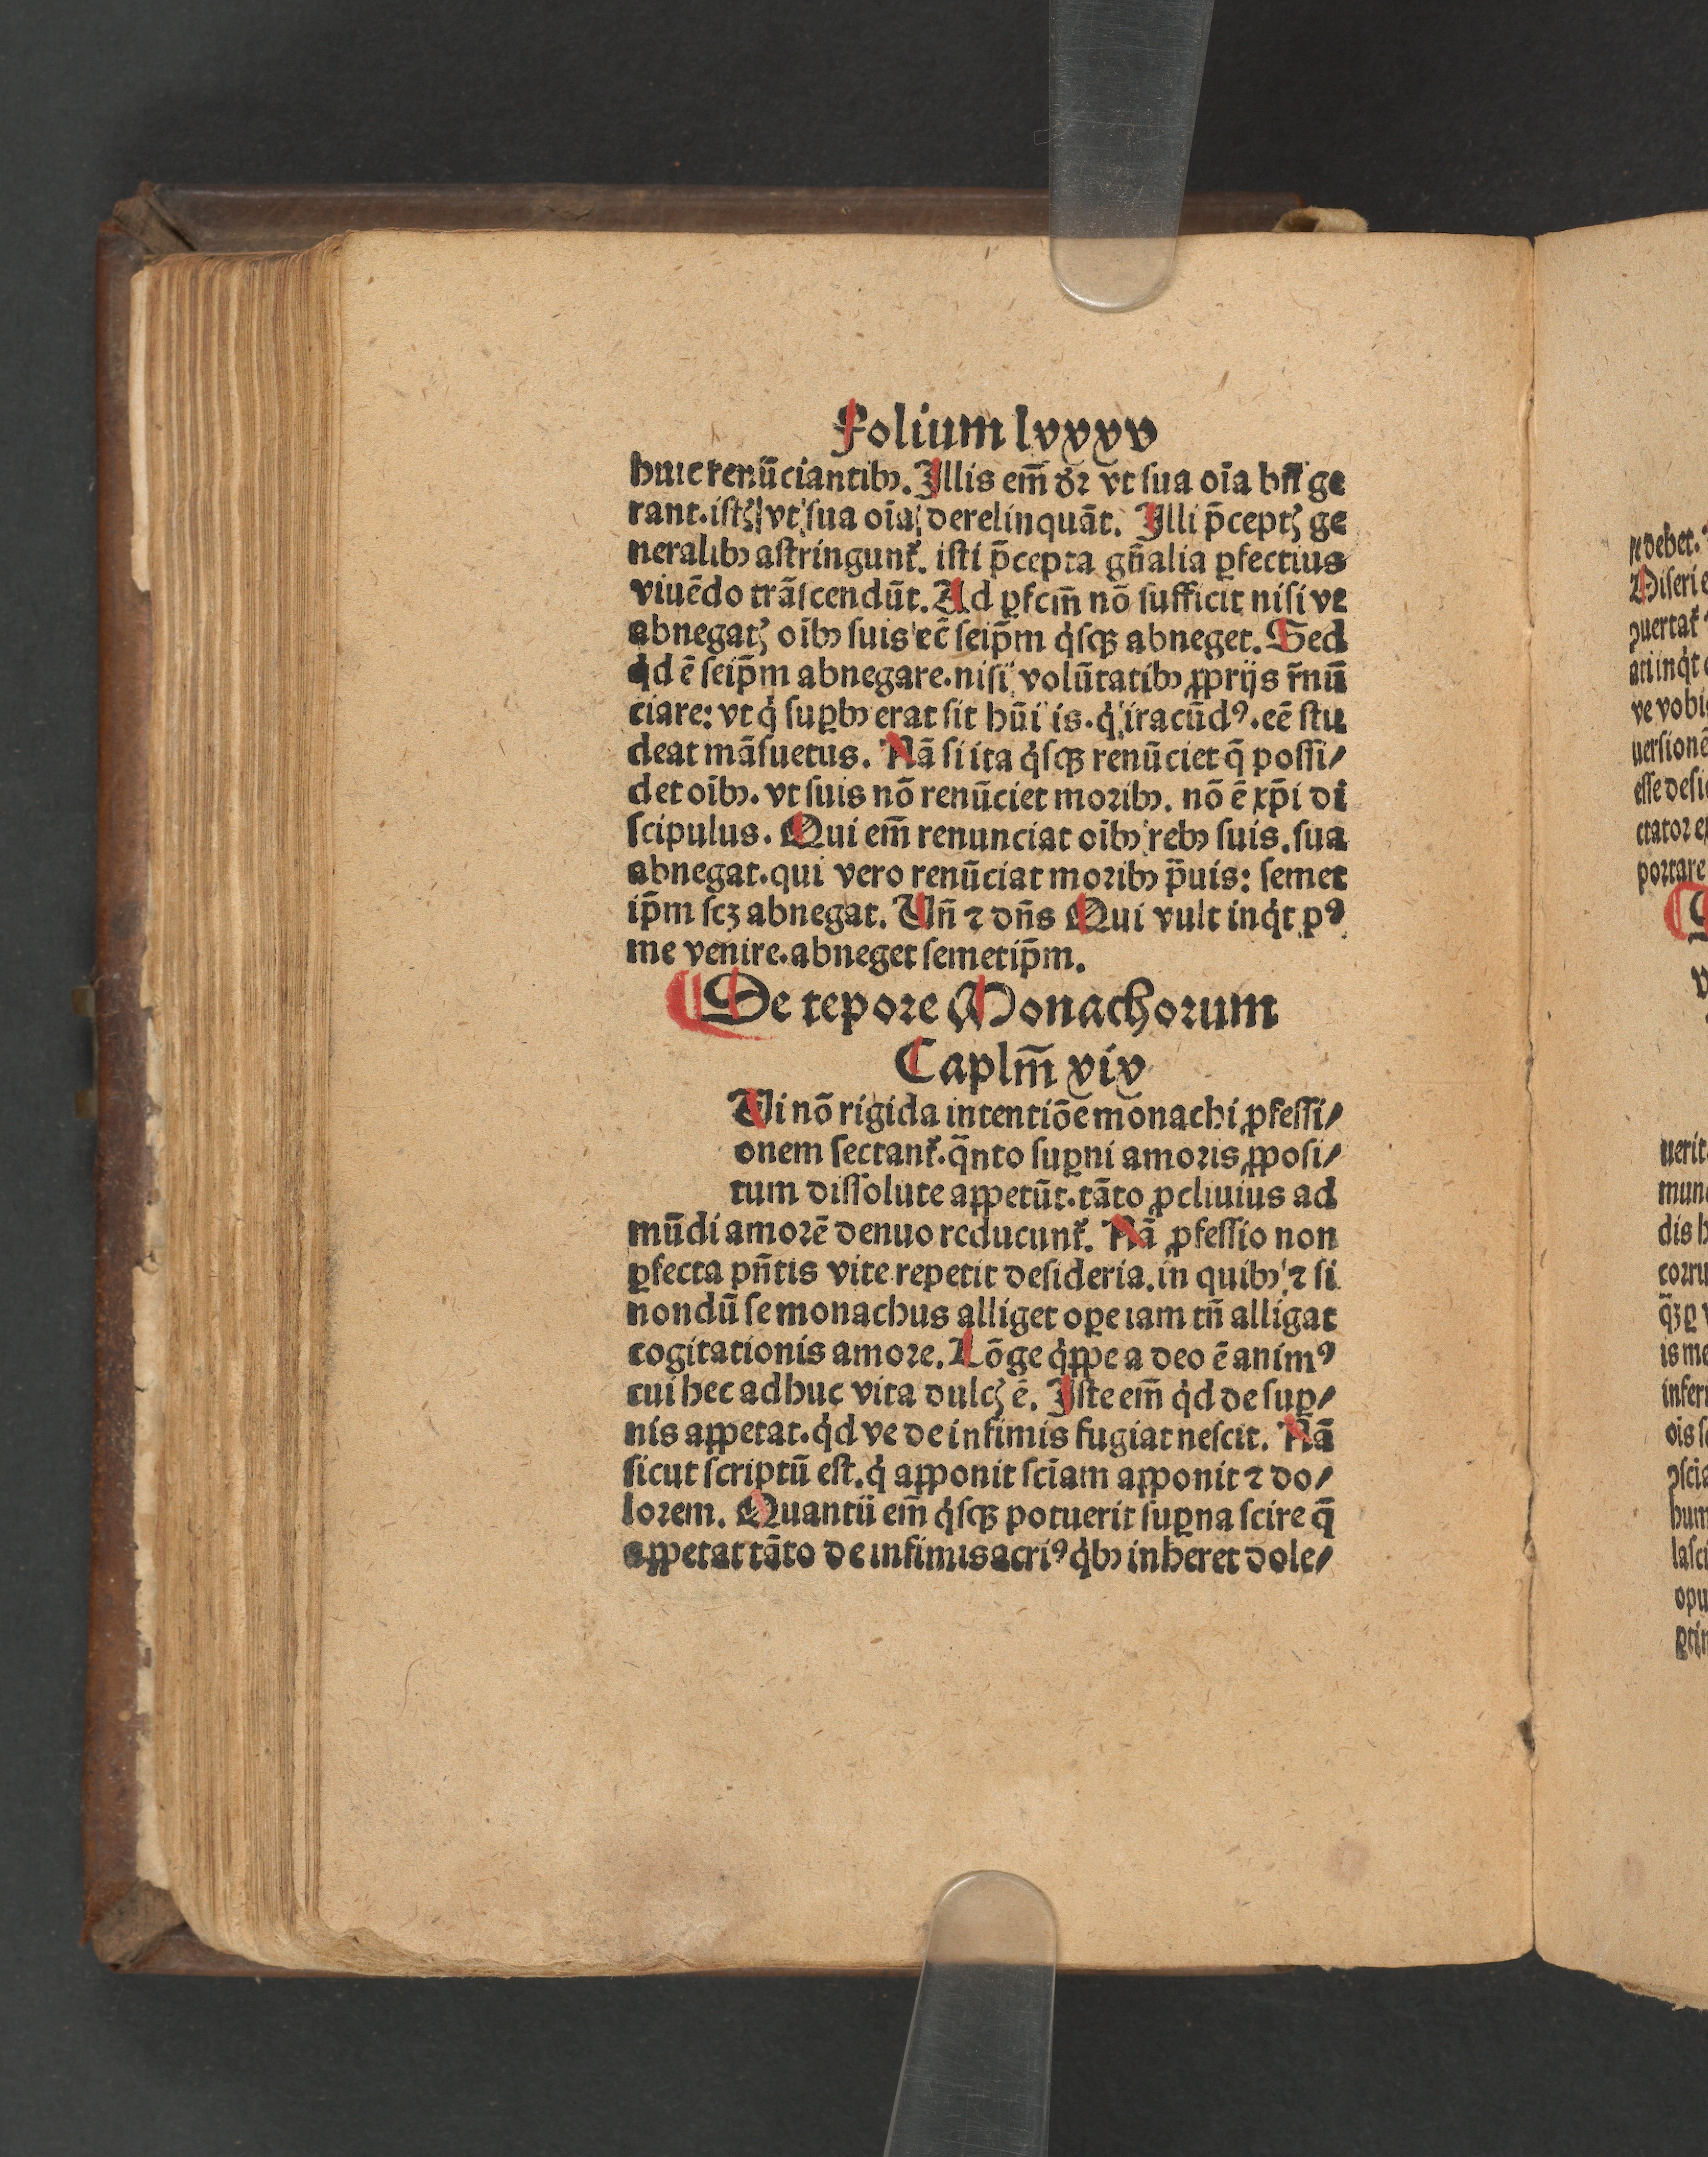 Folium lxxxv
huic renũciantibꝰ. Illis em̃ dr̃ vt sua oĩa bñ ge
rant. istꝭ vt sua oĩa derelinquãt. Illi p̃ceptꝭ ge
neralibꝰ astringunt᷑. isti p̃cepta gñalia ꝑfectius
viuẽdo trãscendũt. Ad ꝑfcm̃ nõ sufficit nisi ve
abnegatꝭ oĩbꝰ suis ec̃ seip̃m qͥsqꝫ abneget. Sed
qͥd ẽ seip̃m abnegare. nisi volũtatibꝰ ꝓprijs r̃nũ
ciare: vt qͥ suꝑbꝰ erat sit hũi is. qͥ iracũdꝰ. eẽ stu
deat mãsuetus. Nã si ita qͥsqꝫ renũciet q̃ possi/
det oĩbꝰ. vt suis nõ renũciet moribꝰ. nõ ẽ xp̃i di
scipulus. Qui em̃ renunciat oĩbꝰ rebꝰ suis. sua
abnegat. qui vero renũciat moribꝰ p̃uis: semet
ip̃m scꝫ abnegat. Vñ ⁊ dñs Qui vult inqͥt pꝰ
me venire. abneget semetip̃m.
De tepore Monachorum
Caplm̃ xix
Vi nõ rigida intentiõe monachi ꝓfessi/
onem sectant᷑. q̃nto suꝑni amoris ꝓposi/
tum dissolute aꝓpetũt. tãto ꝓcliuius ad
mũdi amorẽ denuo reducunt᷑. Nã ꝓfessio non
ꝑfecta pñtis vite repetit desideria. in quibꝰ ⁊ si
nondũ se monachus alliget oꝑe iam tñ alligat
cogitationis amore. Lõge qͥppe a deo ẽ animꝰ
cui hec adhuc vita dulcꝭ ẽ. Iste em̃ qͥd de suꝑ/
nis appetat. qͥd ve de infimis fugiat nescit. Nã
sicut scriptũ est. qͥ apponit sciam apponit ⁊ do/
lorem. Quantũ em̃ qͥsqꝫ potuerit suꝑna scire q̃
appetat tãto de infimis acriꝰ qͥbꝰ inheret dole/